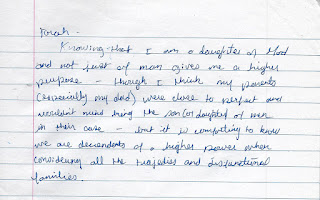 Farah -
Knowing that I am a daughter of God
and not just of man gives me a higher
purpose - though I think my parents
(especially my dad) were close to perfect and
wouldn't mind being the son (or daughter) of men
in their case - but it is comforting to know
we are descendents of a higher power when
considering all the tragedies and disfunctional
families.